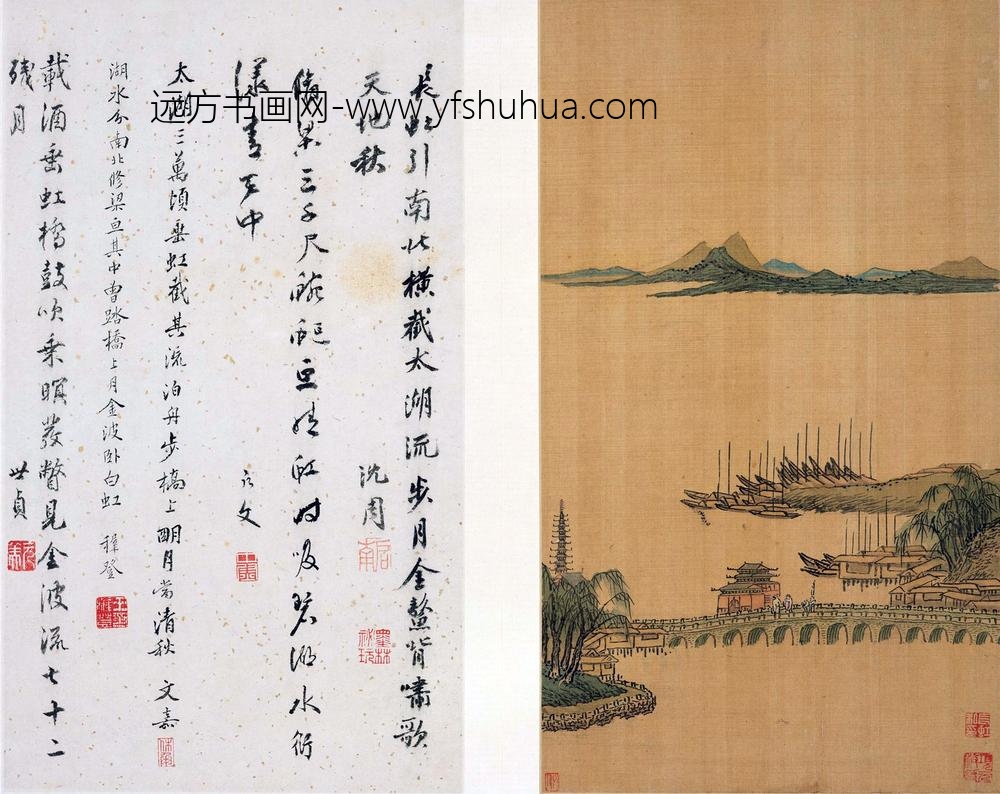 远方书画网-www.yfshuhua.com
長虹引南北橫截太湖流步月金鰲背嘯歌
天地秋 沈周
脩梁三千尺蜿蜒亘虹時吸碧湖水衍
漾青天中
太湖三萬頃垂虹截其流泊舟步橋上明月當清秋 文嘉
湖水分南北修梁亘其中曾踏橋上月金波卧白虹 穉登
載酒垂虹橋鼓吹乘暝發瞥見金波流七十二
磯月 世貞